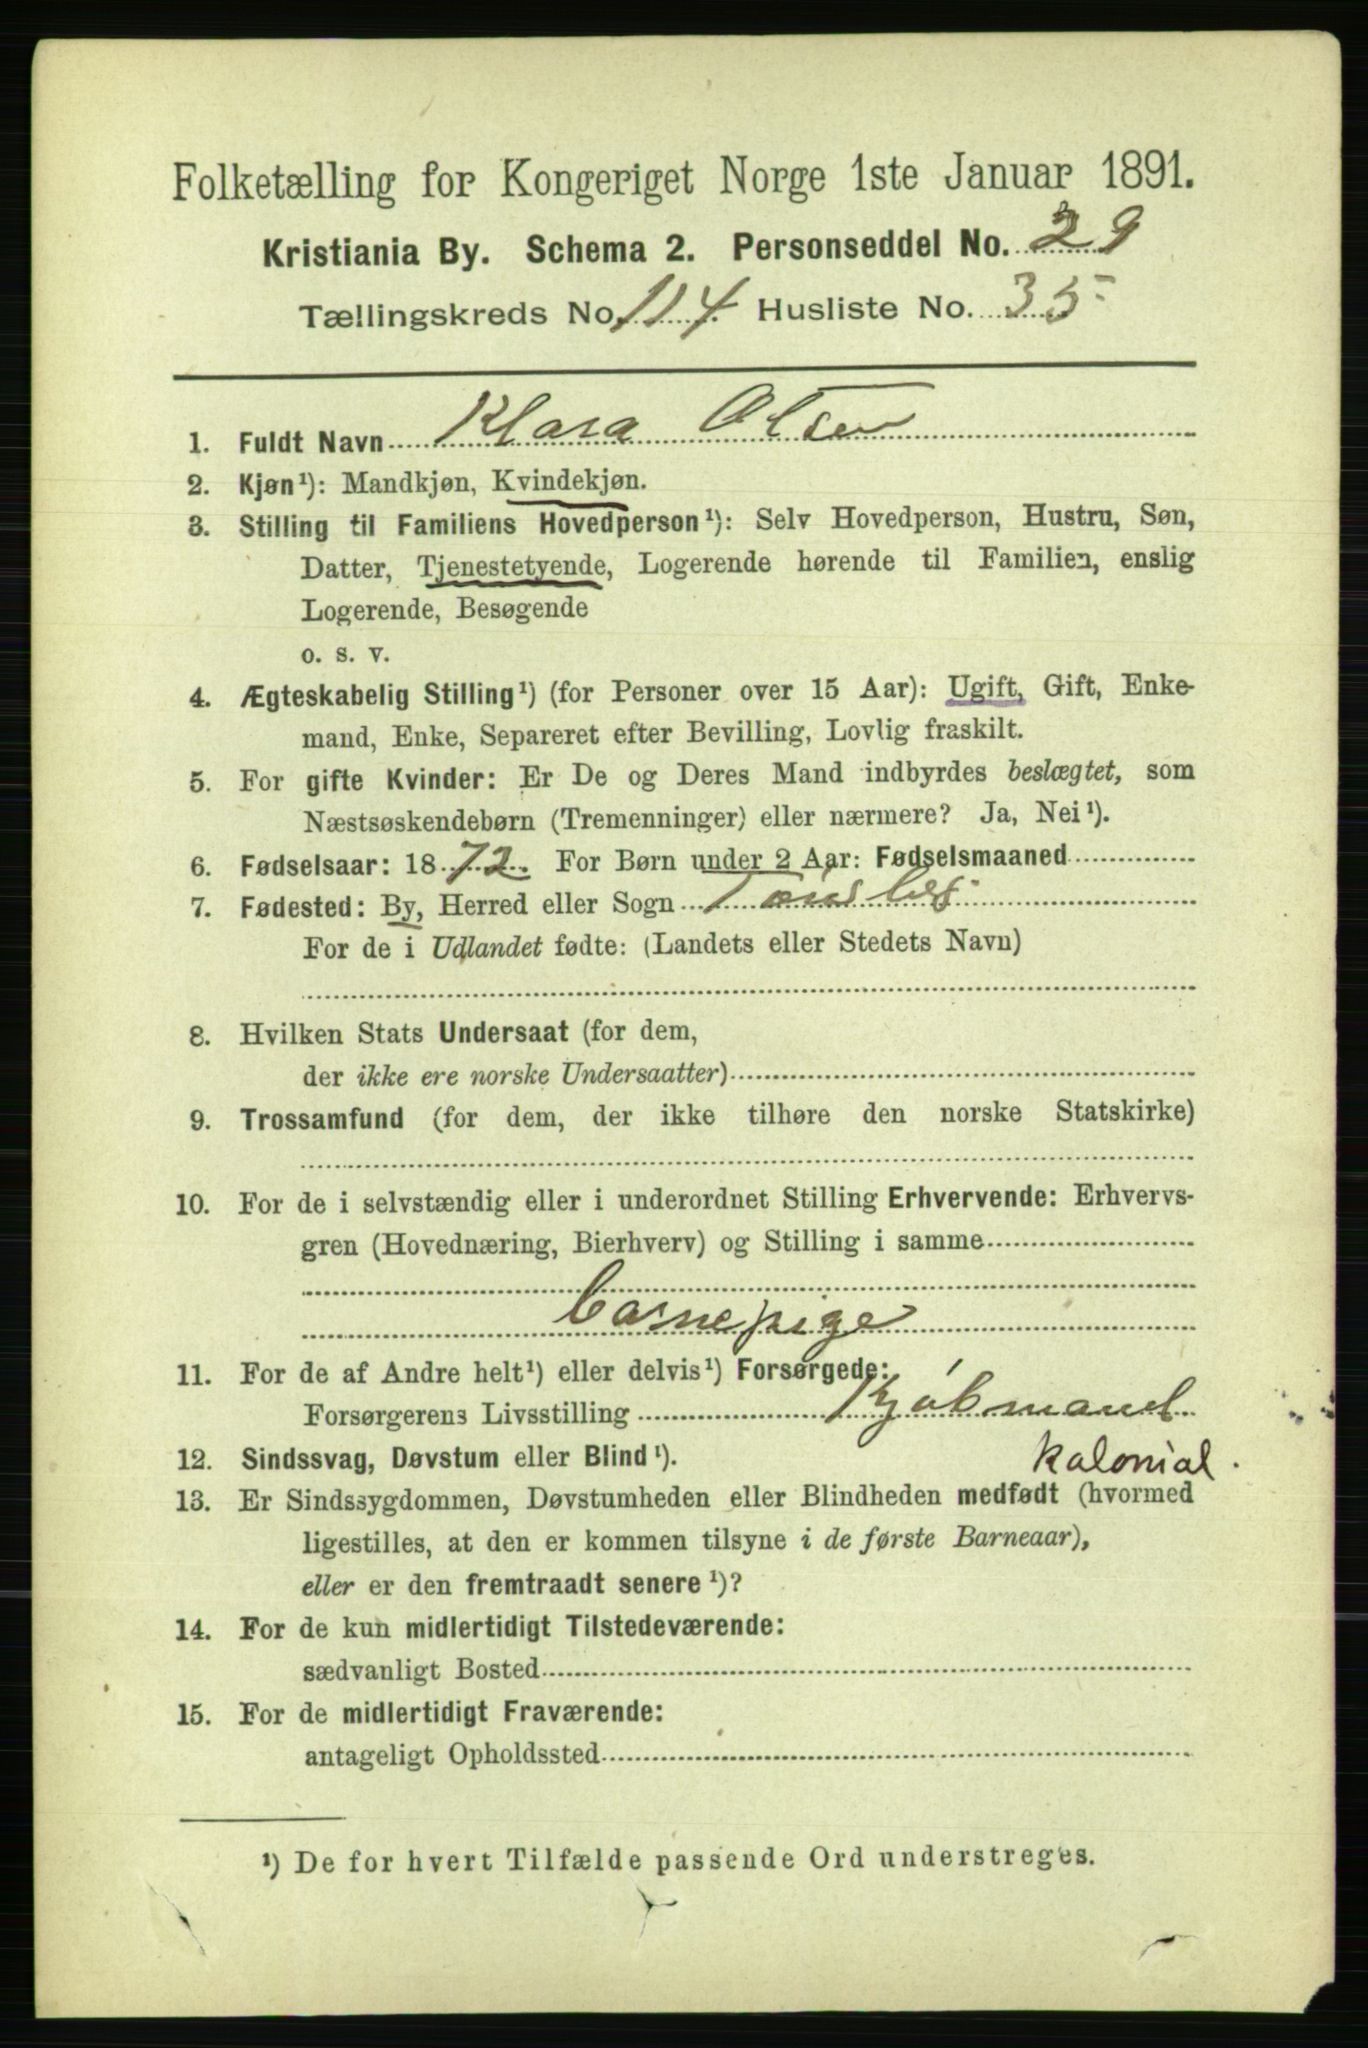 Folketælling for Kongeriget Norge 1ste Januar 1891.
Kristiania By. Schema 2. Personseddel No. 29
Tællingskreds No. 114 Husliste No. 35
1. Fuldt Navn Klara Olsen
2. Kjøn¹): Mandkjøn, Kvindekjøn.
3. Stilling til Familiens Hovedperson¹): Selv Hovedperson, Hustru, Søn,
Datter, Tjenestetyende, Logerende hørende til Familien, enslig
Logerende, Besøgende
o. s. v.
4. Ægteskabelig Stilling¹) (for Personer over 15 Aar): Ugift, Gift, Enke-
mand, Enke, Separeret efter Bevilling, Lovlig fraskilt.
5. For gifte Kvinder: Er De og Deres Mand indbyrdes beslægtet, som
Næstsøskendebørn (Tremenninger) eller nærmere? Ja, Nei¹).
6. Fødselsaar: 1872. For Børn under 2 Aar: Fødselsmaaned
7. Fødested: By, Herred eller Sogn
For de i Udlandet fødte: (Landets eller Stedets Navn)
8. Hvilken Stats Undersaat (for dem,
der ikke ere norske Undersaatter)
9. Trossamfund (for dem, der ikke tilhøre den norske Statskirke)
10. For de i selvstændig eller i underordnet Stilling Erhvervende: Erhvervs-
gren (Hovednæring, Bierhverv) og Stilling i samme
Barnepige
11. For de af Andre helt¹) eller delvis¹) Forsørgede:
Forsørgerens Livsstilling Kjøbmand
kolonial.
12. Sindssvag, Døvstum eller Blind¹).
13. Er Sindssygdommen, Døvstumheden eller Blindheden medfødt (hvormed
ligestilles, at den er kommen tilsyne i de første Barneaar),
eller er den fremtraadt senere¹)?
14. For de kun midlertidigt Tilstedeværende:
sædvanligt Bosted
15. For de midlertidigt Fraværende:
antageligt Opholdssted
¹) De for hvert Tilfælde passende Ord understreges.